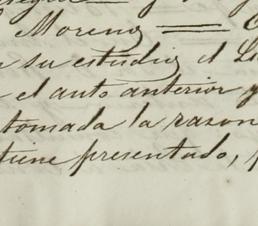 Moreno
su estudio el
el auto anterior y
tomada la razon
tiene presentado,